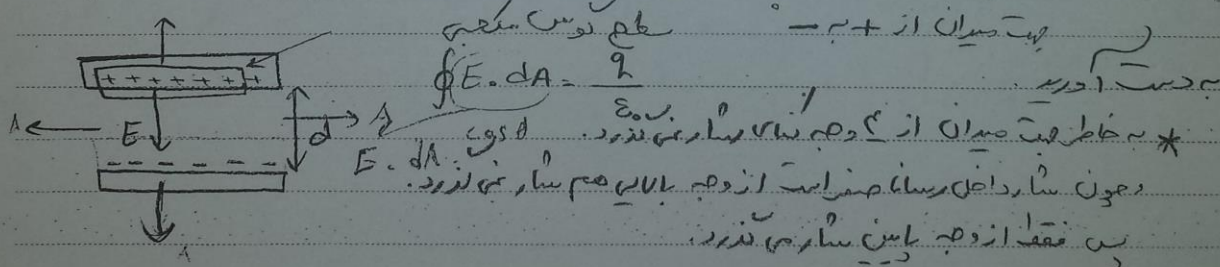 جهت میدان از + به −
سطح گوس مکعبی
به دست آورید.
∮E.dA = q/ε₀
+ + + + + + +
A E d A
E.dA.cosθ
* به خاطر جهت میدان از ۴ وجه کناری شار نمی گذرد.
و چون شار داخل رسانا صفر است از وجه بالایی هم شار نمی گذرد.
− − − − − −
پس فقط از وجه پایین شار می گذرد.
A